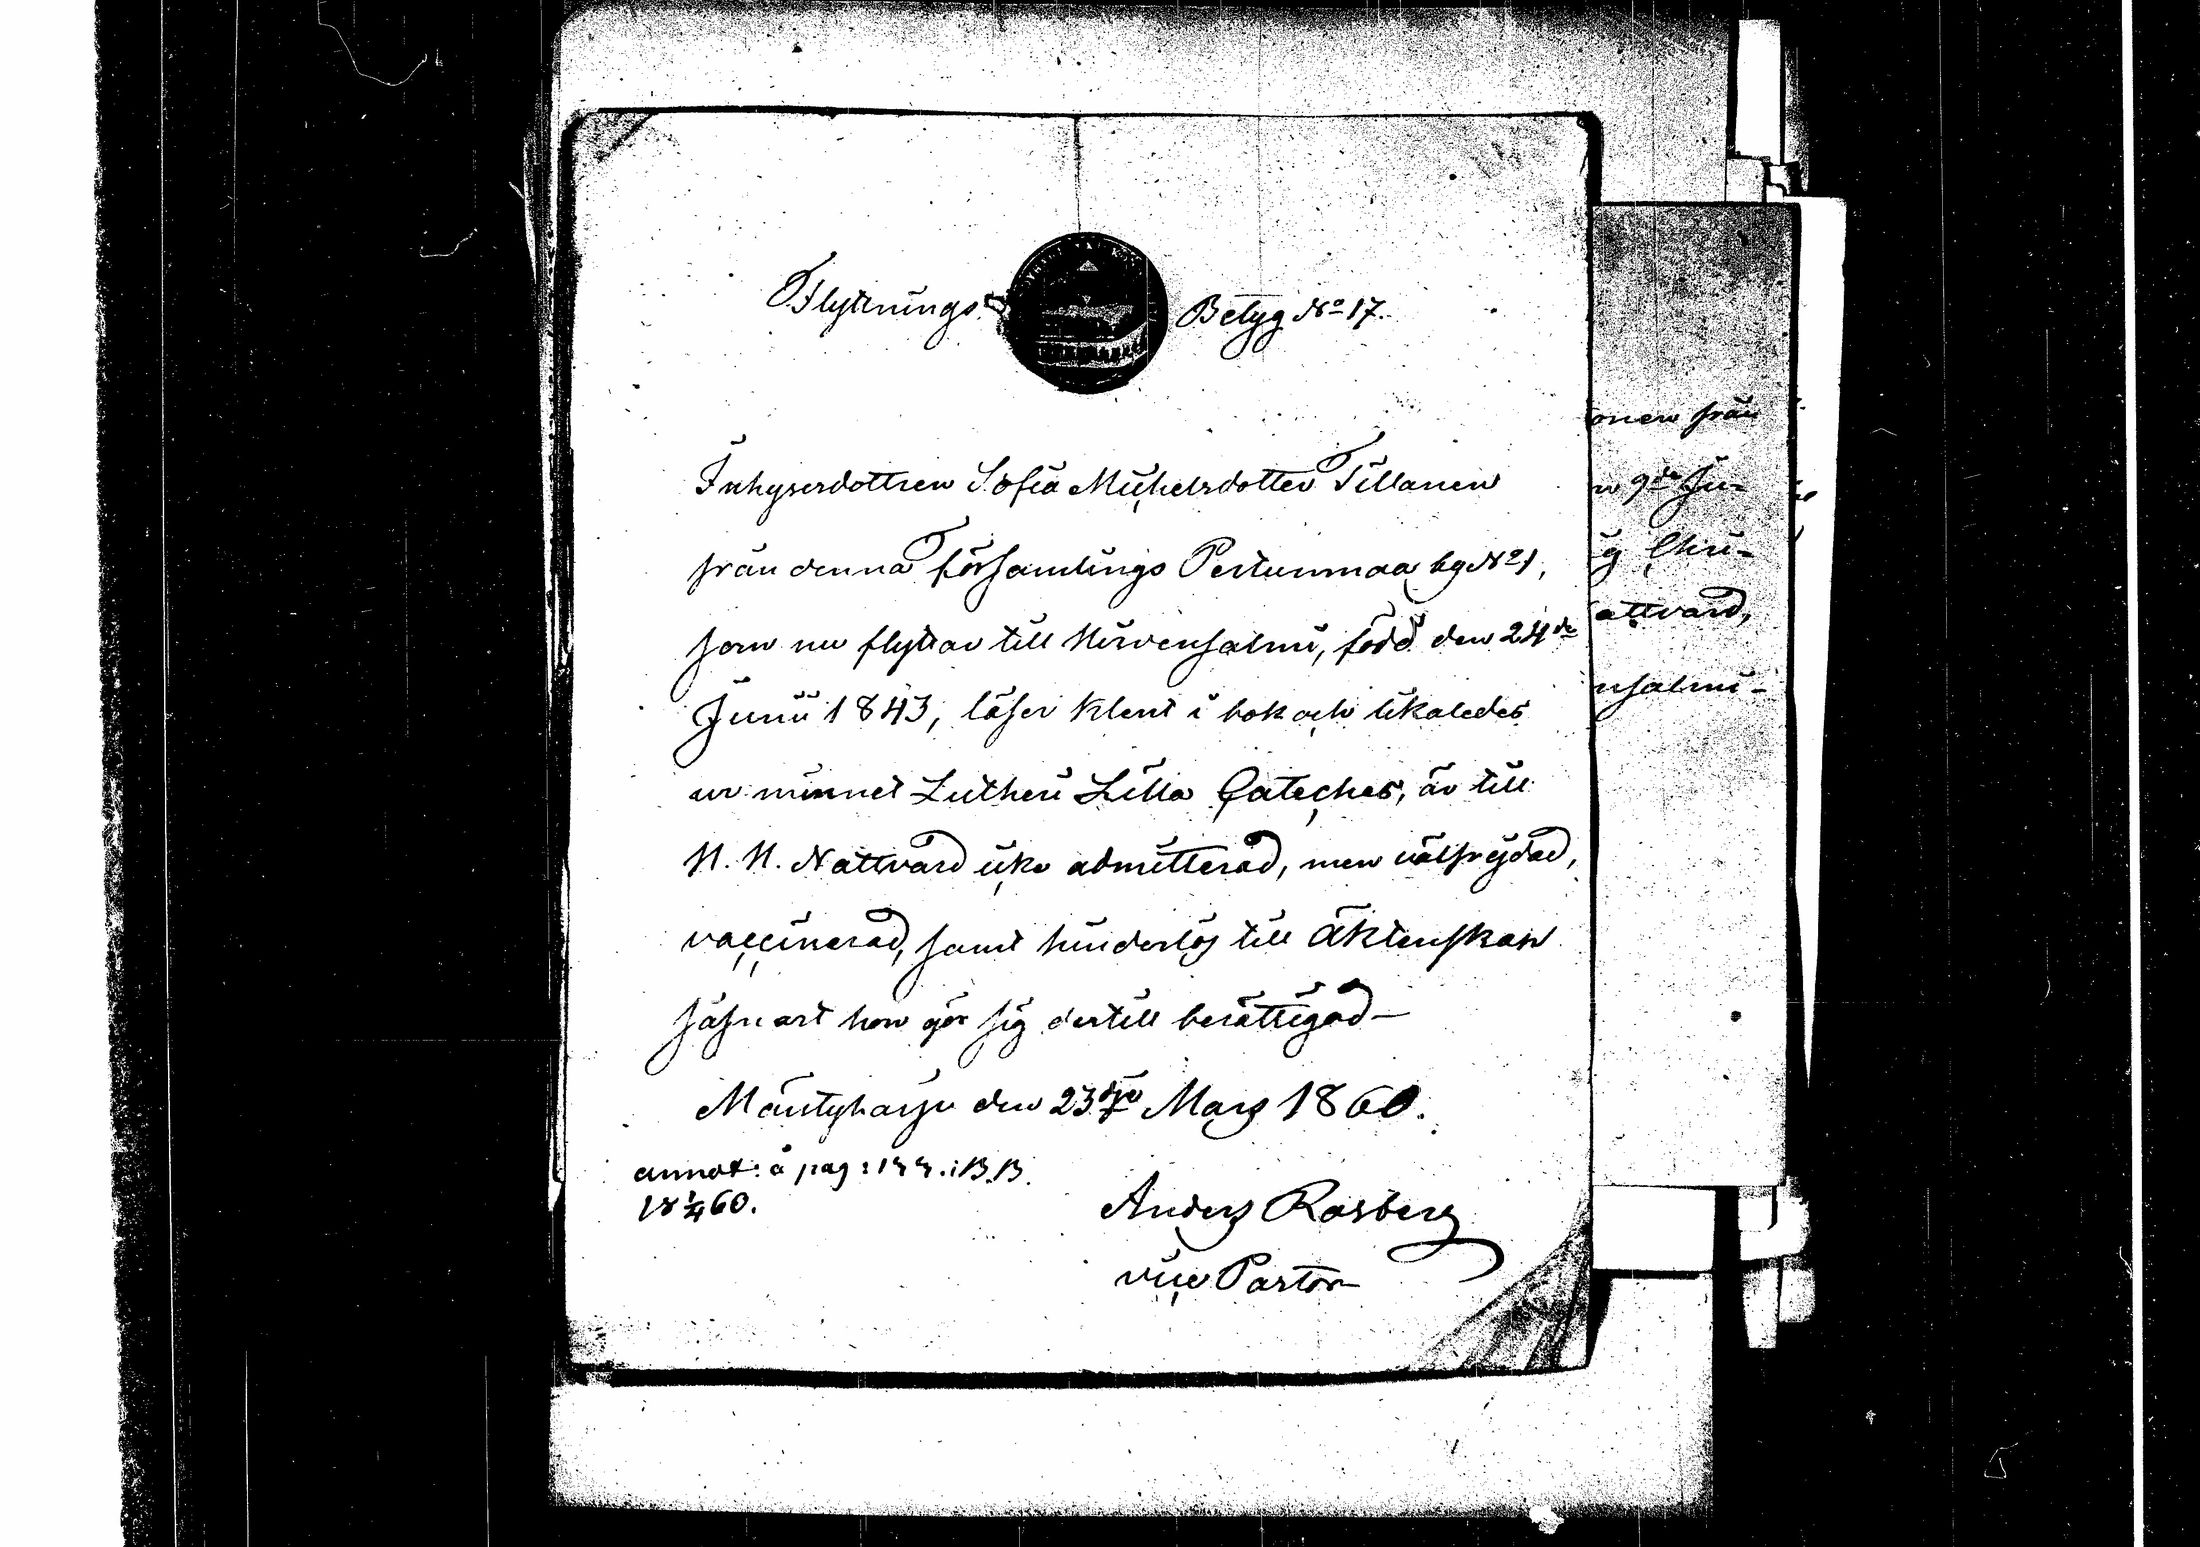 Flyttnings Betyg No 17.
Inhysesdottren Sofia Michelsdotter Tillanen
från denna Församlings Pertunmaa by No 1,
som nu flyttar till Hirvensalmi, född den 24de
Junii 1843, läser klent i bok och likaledes
ur minnet Lutheri Lilla Cateches, är till
H. H. Nattvard icke admitterad, men välfrejdad,
vaccinerad, samt hinderlös till Äktenskap
såsnart hon gör sig dertill berättigad—
Mäntyharju den 23dje Mars 1860.
annot: å pag: 144. i B.B.
18 1/4 60.
Anders Rosberg
vice Pastor
onen från
n 9de Ju-
ig Chri-
attvard,
nsalmi-